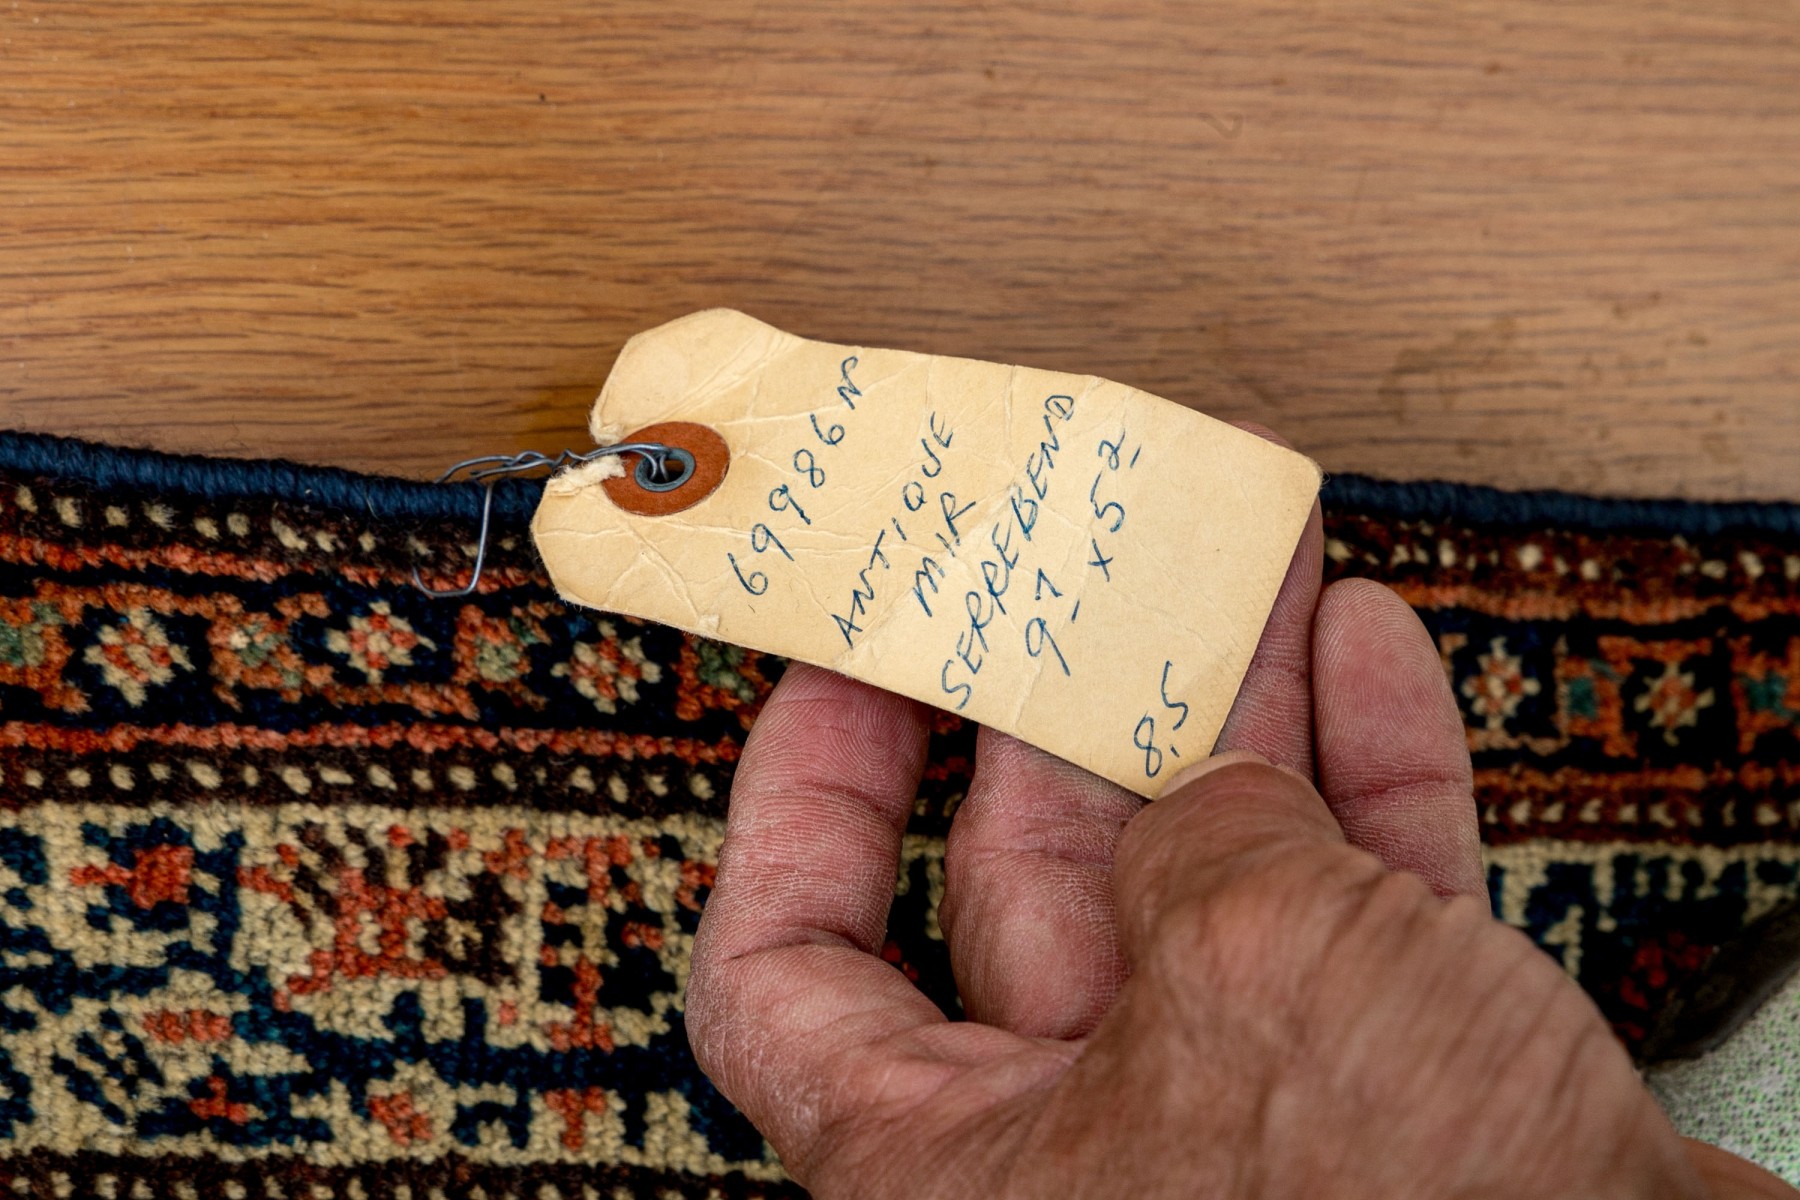 69986 N
ANTIQUE
MIR
SERREBEND
9.7 x 5.2
8.5